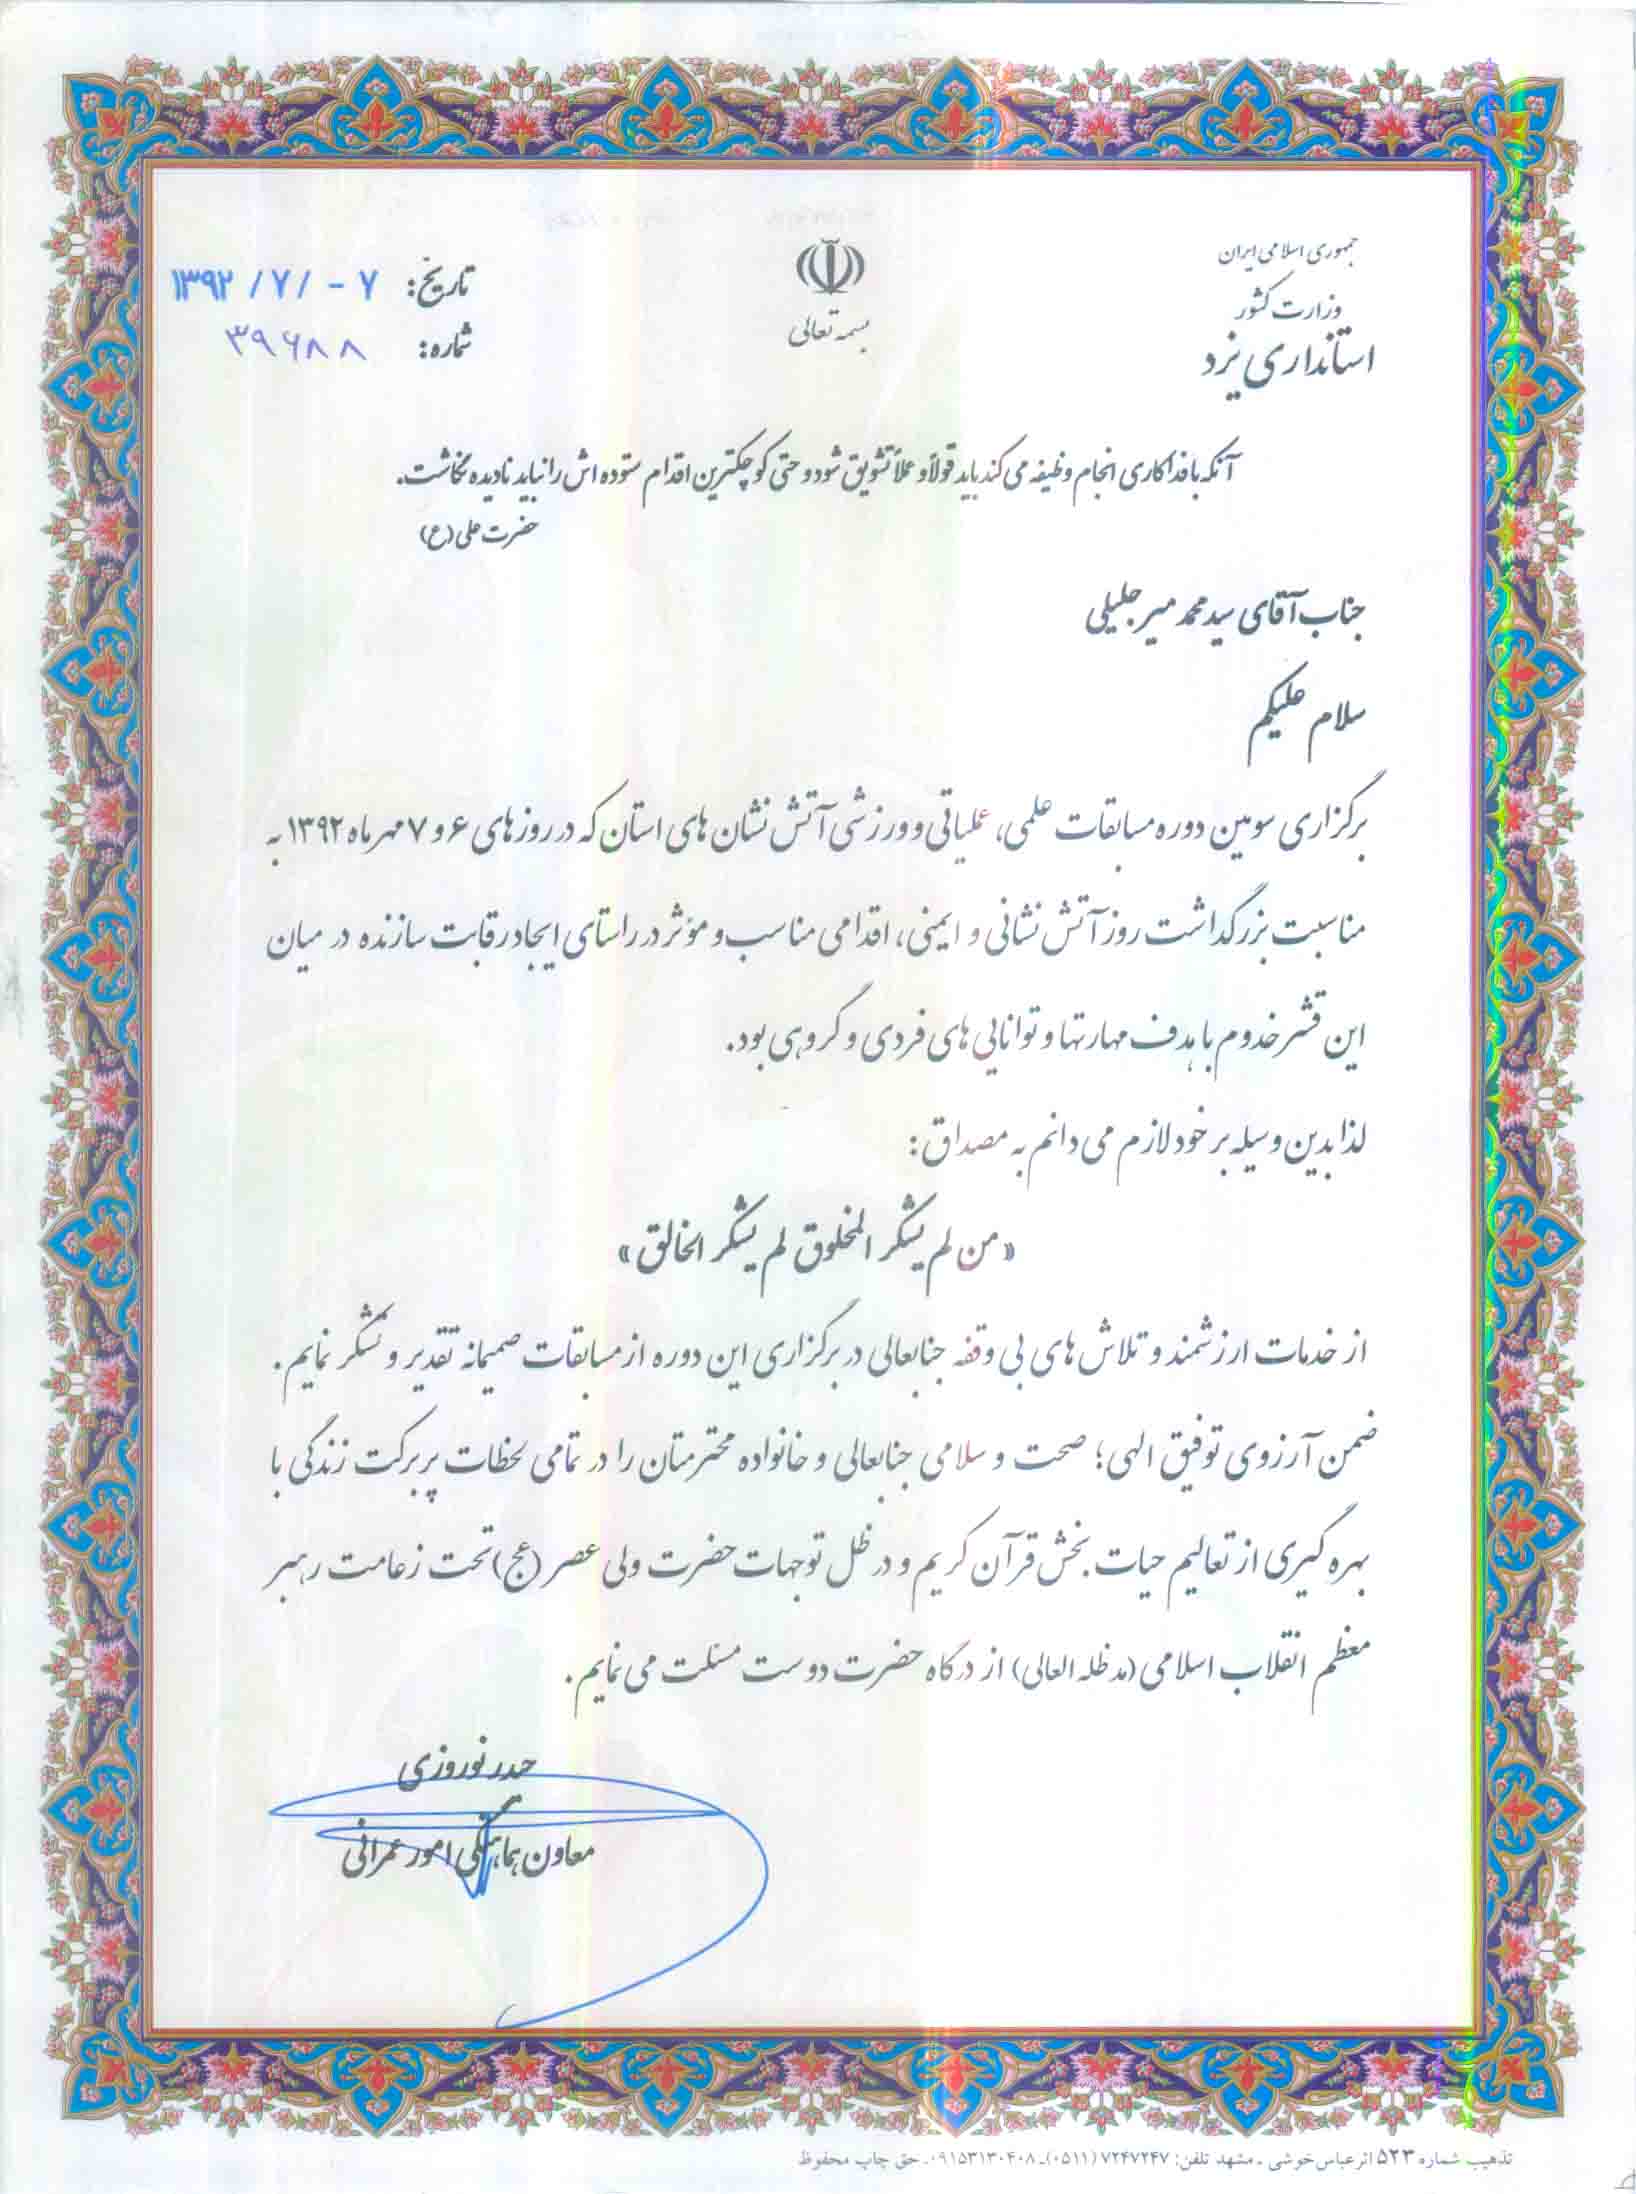 جمهوری اسلامی ایران
وزارت کشور
استانداری یزد
بسمه تعالی
تاریخ: ۱۳۹۲/۷/-۷
شماره: ۳۹۶۸۸
آنکه با فداکاری انجام وظیفه می کند باید قولاً و عملاً تشویق شود و حتی کوچکترین اقدام ستوده اش را نباید نادیده نگاشت.
حضرت علی (ع)
جناب آقای سید محمد میرجلیلی
سلام علیکم
برگزاری سومین دوره مسابقات علمی، عملیاتی و ورزشی آتش نشان های استان که در روزهای ۶ و ۷ مهرماه ۱۳۹۲ به
مناسبت بزرگداشت روز آتش نشانی و ایمنی، اقدامی مناسب و مؤثر در راستای ایجاد رقابت سازنده در میان
این قشر خدوم با هدف مهارتها و توانایی های فردی و گروهی بود.
لذا بدین وسیله بر خود لازم می دانم به مصداق:
«من لم یشکر المخلوق لم یشکر الخالق»
از خدمات ارزشمند و تلاش های بی وقفه جنابعالی در برگزاری این دوره از مسابقات صمیمانه تقدیر و تشکر نمایم.
ضمن آرزوی توفیق الهی؛ صحت و سلامی جنابعالی و خانواده محترمتان را در تمامی لحظات پربرکت زندگی با
بهره گیری از تعالیم حیات بخش قرآن کریم و در ظل توجهات حضرت ولی عصر (عج) تحت زعامت رهبر
معظم انقلاب اسلامی (مدظله العالی) از درگاه حضرت دوست مسئلت می نمایم.
حیدر نوروزی
معاون هماهنگی امور عمرانی
تذهیب شماره ۵۲۳ اثر عباس خوشی ـ مشهد تلفن: ۷۲۴۷۲۴۷ (۰۵۱۱)ـ ۰۹۱۵۳۱۳۰۴۰۸ـ حق چاپ محفوظ